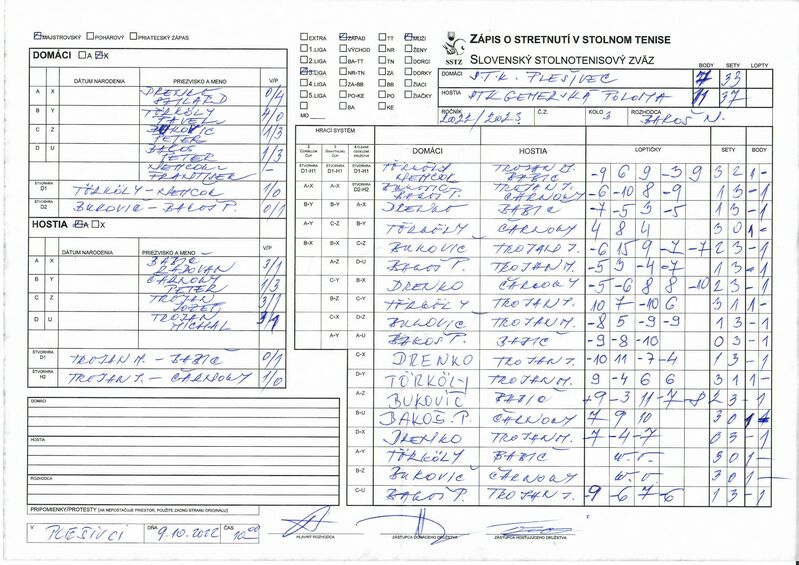 MAJSTROVSKÝ POHÁROVÝ PRIATEĽSKÝ ZÁPAS
DOMÁCI A X
DÁTUM NARODENIA PRIEZVISKO A MENO V/P
A X DRENKO SZILÁRD 0/4
B Y TÖRKÖLY PAVEL 4/0
C Z BUKOVIC PETER 1/3
D U BAKOŠ PETER 1/3
NEMČOK FRANTIŠEK –
ŠTVORHRA D1 TÖRKÖLY – NEMČOK 1/0
ŠTVORHRA D2 BUKOVIČ – BAKOŠ P. 0/1
HOSTIA A X
DÁTUM NARODENIA PRIEZVISKO A MENO V/P
A X BABIČ RADOVAN 3/1
B Y ČARNOWY PETER 1/3
C Z TROJAN JOZEF 3/1
D U TROJAN MICHAL
ŠTVORHRA D1 TROJAN M. – BABIČ 0/1
ŠTVORHRA H2 TROJAN J. – ČARNOWY 1/0
DOMÁCI
HOSTIA
ROZHODCA
PRIPOMIENKY/PROTESTY (AK NEPOSTAČUJE PRIESTOR, POUŽITE ZADNÚ STRANU ORIGINÁLU)
V PLEŠIVCI DŇA 9.10.2022 ČAS 10 00
HLAVNÝ ROZHODCA ZÁSTUPCA DOMÁCEHO DRUŽSTVA ZÁSTUPCA HOSŤUJÚCEHO DRUŽSTVA
EXTRA ZÁPAD TT MUŽI
1.LIGA VÝCHOD NR ŽENY
2.LIGA BA-TT TN DORCI
3.LIGA NR-TN ZA DORKY
4.LIGA ZA-BB BB ŽIACI
5.LIGA PO-KE PO ŽIAČKY
BA KE
MO
SSTZ
ZÁPIS O STRETNUTÍ V STOLNOM TENISE
SLOVENSKÝ STOLNOTENISOVÝ ZVÄZ
BODY SETY LOPTY
DOMÁCI STK PLEŠIVEC 7 33
HOSTIA STK GEMERSKÁ POLOMA 11 37
ROČNÍK 2022/2023 Č.Z. KOLO 3 ROZHODCA BAKOŠ N.
HRACÍ SYSTÉM
DOMÁCI HOSTIA LOPTIČKY SETY BODY
TÖRKÖLY NEMČOK TROJAN M. BABIČ -9 6 9 -3 9 3 2 1 -
BUKOVIC BAKOŠ P. TROJAN J. ČARNOWY -6 -10 8 -9 1 3 - 1
DRENKO BABIČ -7 -5 3 -5 1 3 - 1
TÖRKÖLY ČARNOWY 4 8 4 3 0 1 -
BUKOVIC TROJAN J. -6 15 9 -7 -7 2 3 - 1
BAKOŠ P. TROJAN M. -5 9 -4 -7 1 3 - 1
DRENKO ČARNOWY -5 -6 8 8 -10 2 3 - 1
TÖRKÖLY TROJAN J. 10 7 -10 6 3 1 1 -
BUKOVIC TROJAN M. -8 5 -9 -9 1 3 - 1
BAKOŠ P. BABIČ -9 -8 -10 0 3 - 1
C-X DRENKO TROJAN J. -10 11 -7 -4 1 3 - 1
D-Y TÖRKÖLY TROJAN M. 9 -4 6 6 3 1 1 -
A-Z BUKOVIČ BABIČ 9 -3 11 -7 -8 2 3 - 1
B-U BAKOŠ P. ČARNOWY 7 9 10 3 0 1
D-X DRENKO TROJAN M. -7 -4 -7 0 3 - 1
A-Y TÖRKÖLY BABIČ w.o. 3 0 1 -
B-Z BUKOVIČ ČARNOWY w.o. 3 0 1 -
C-U BAKOŠ P. TROJAN J. -9 -6 7 -6 1 3 - 1